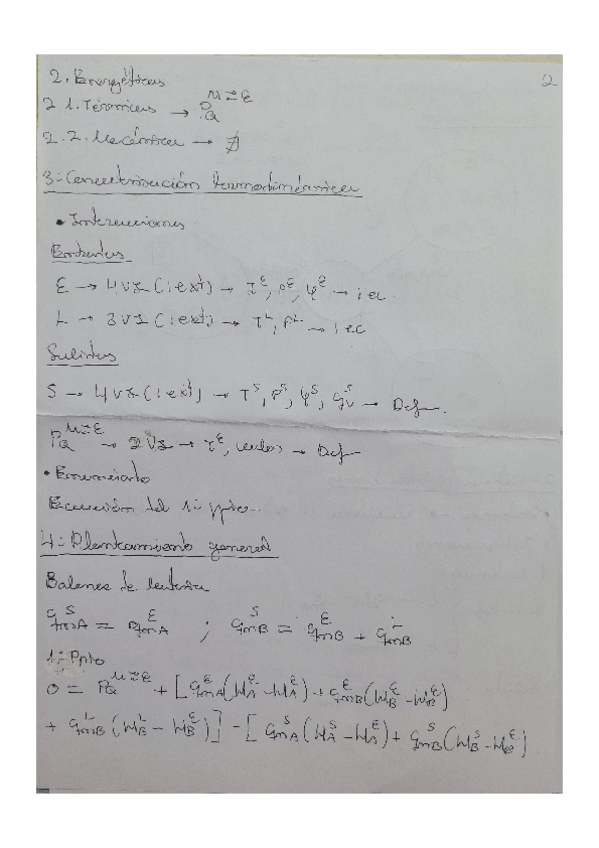 2
2. Energéticas
2.1. Térmicas → P_Q^{M⇌E}
2.2. Mecánicas → ∄
3.- Caracterización termodinámica
• Interacciones
Entradas
E → 4 VI (1 ext) → T^E, P^E, φ^E → 1 ec
L → 3 VI (1 ext) → T^L, P^L → 1 ec
Salidas
S → 4 VI (1 ext) → T^S, P^S, φ^S, q_V^S → Def
P_Q^{M⇌E} → 2 VI → T^E, → Def
• Enunciado
Ecuación del 1er ppio.
4.- Planteamiento general
Balance de
q_{mA}^S = q_{mA}^E ; q_{mB}^S = q_{mB}^E + q_{mB}^L
1er Ppio
0 = P_Q^{M⇌E} + [q_{mA}^E (H_A^E - H_A^E) + q_{mB}^E (H_B^E - H_B^E)
+ q_{mB}^L (H_B^L - H_B^E)] - [q_{mA}^S (H_A^S - H_A^E) + q_{mB}^S (H_B^S - H_B^E)]